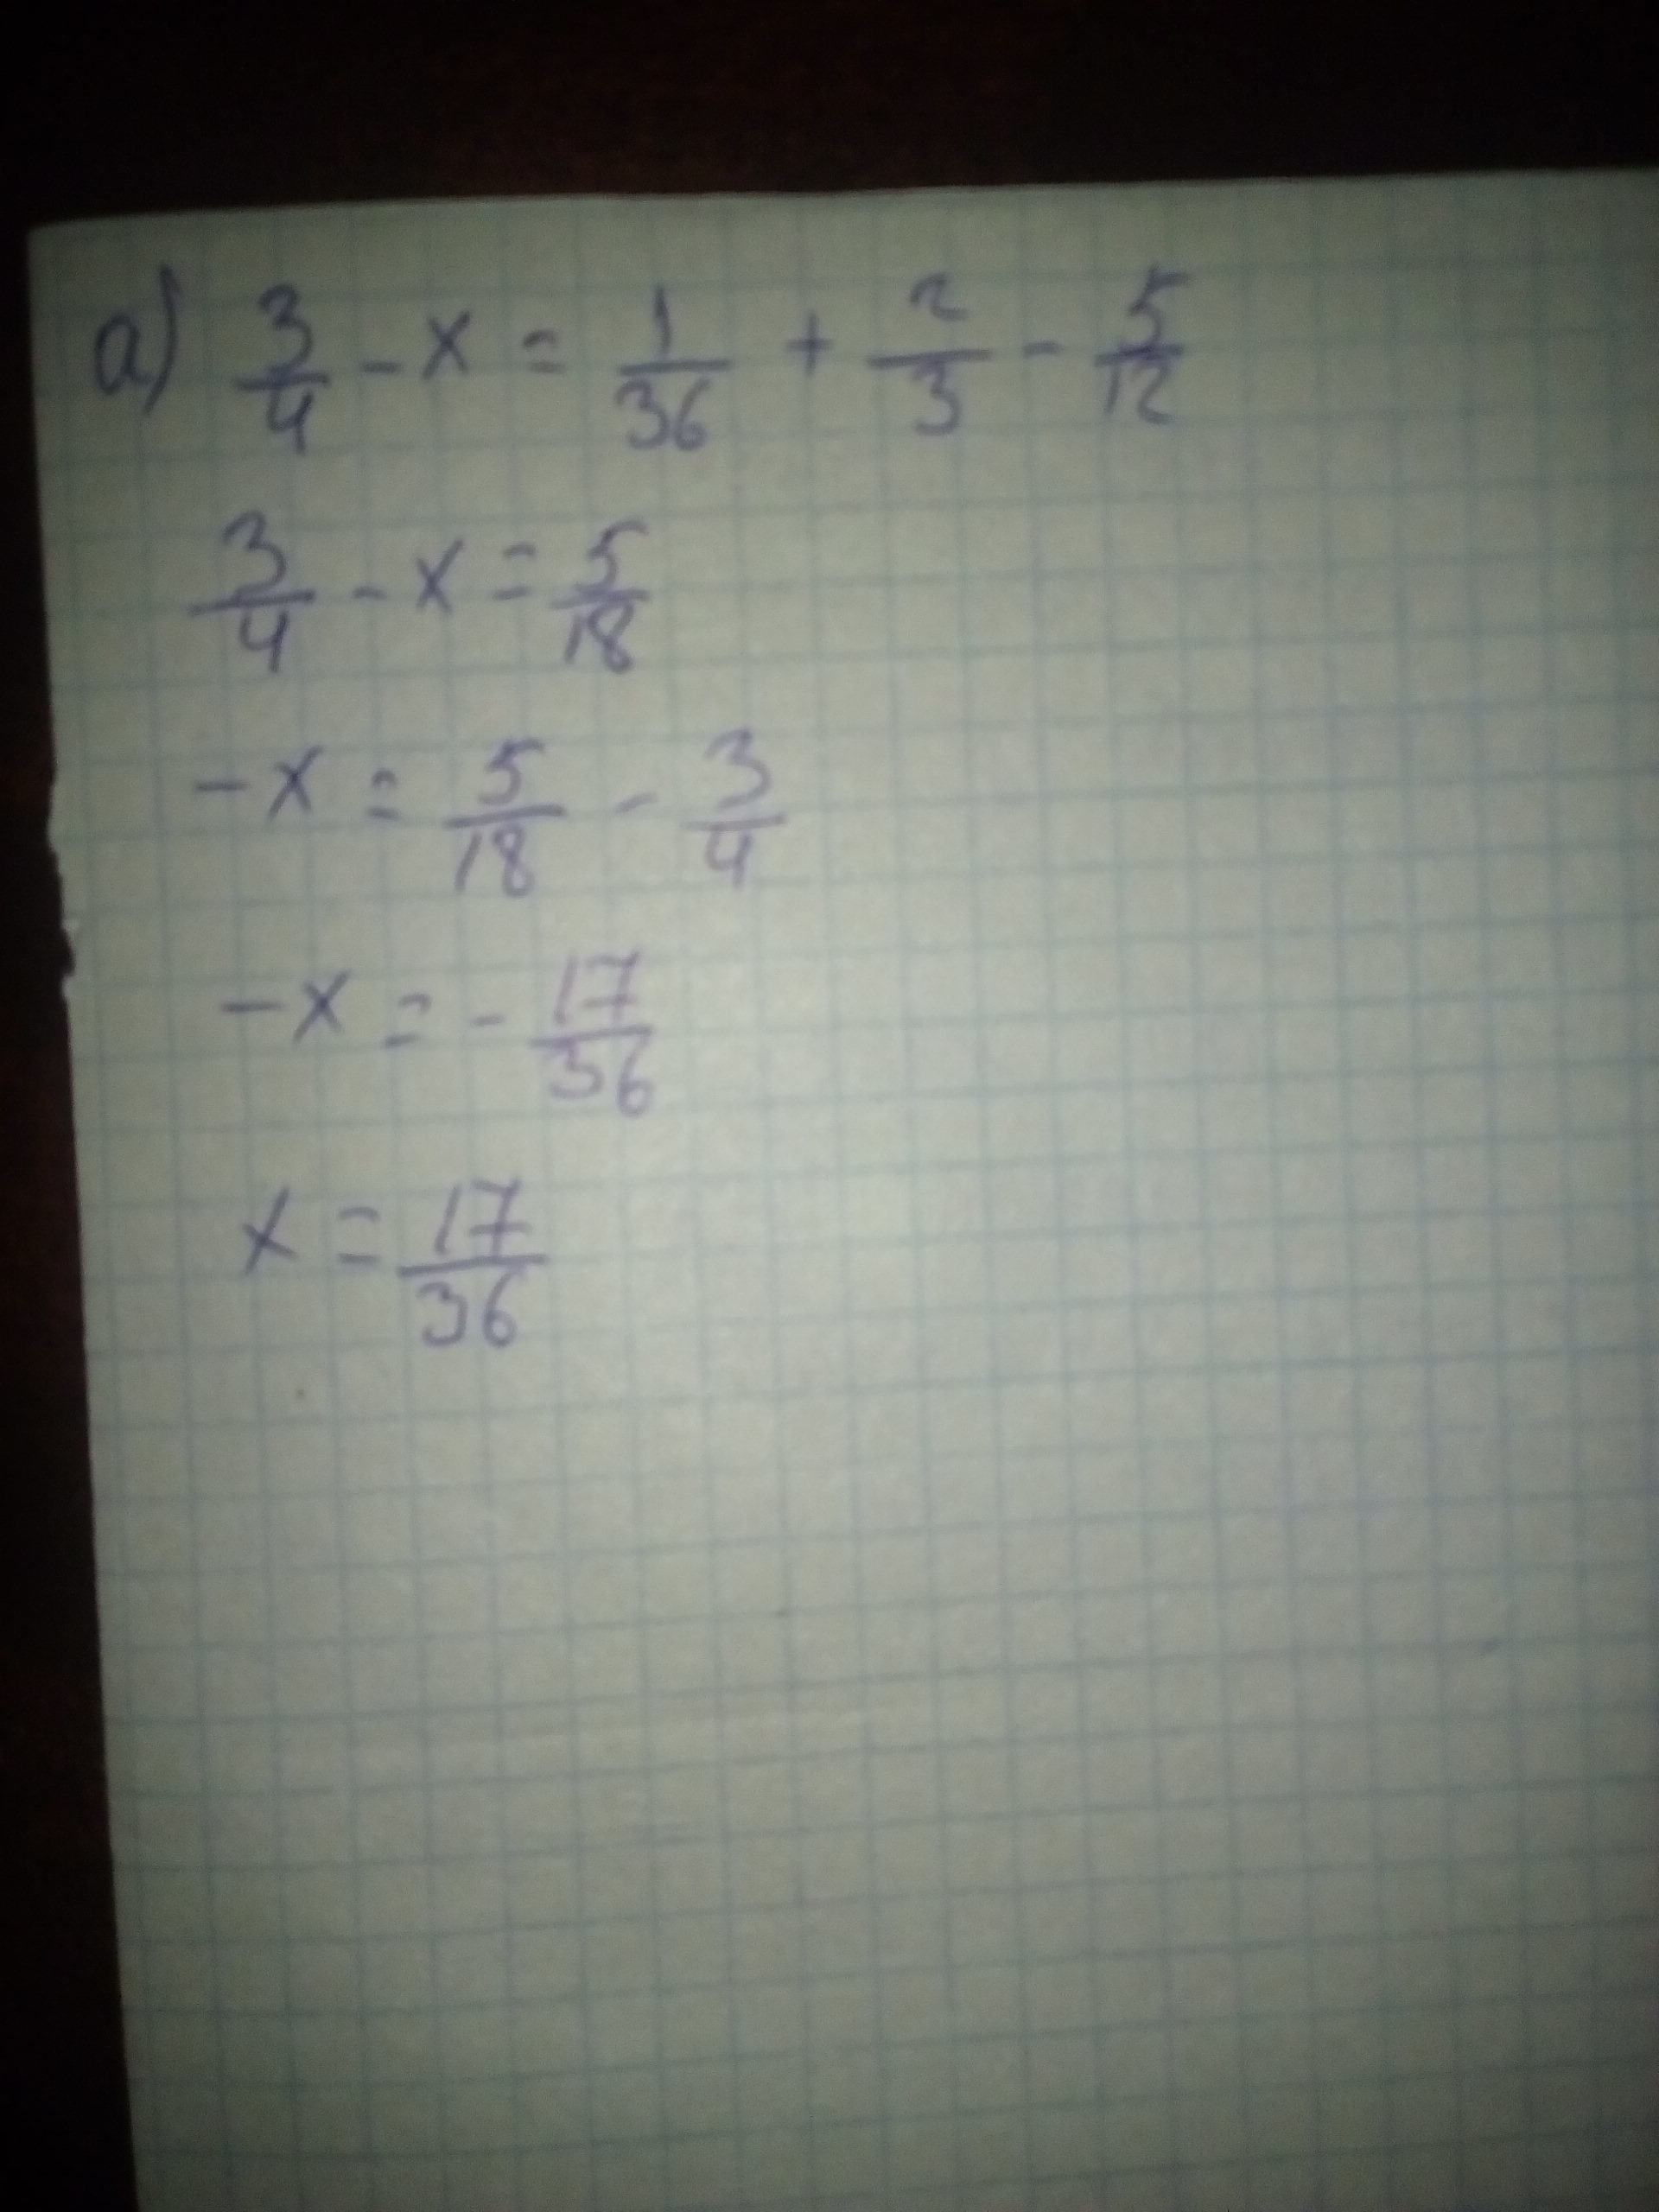 а) 3/4 - x = 1/36 + 2/3 - 5/12
3/4 - x = 5/18
-x = 5/18 - 3/4
-x = -17/36
x = 17/36